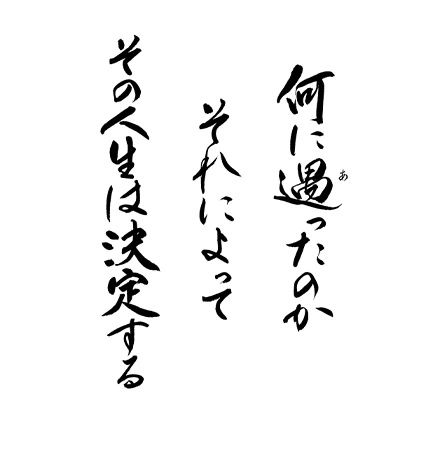 何に遇ったのか
あ
それによって
その人生は決定する